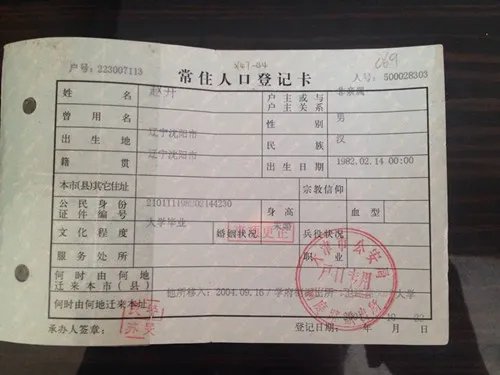 X47-04
069
户号: 223007113
常住人口登记卡
人号: 500028303
姓 名 赵升 户主或与户主关系 非亲属
曾用名 性别 男
出生地 辽宁沈阳市 民族 汉
籍贯 辽宁沈阳市 出生日期 1982.02.14 00:00
本市(县)其它住址 宗教信仰
公民身份证件编号 身高 血型
文化程度 大学毕业 婚姻状况 未婚 兵役状况
服务处所 职业
何时由何地迁来本市(县) 他所移入: 2004.09.16 学府 大学
何时由何地迁来本址
承办人签章: 登记日期: 年 月 日
户口专用